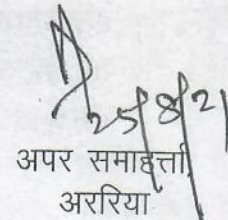 25/8/21
अपर समाहर्त्ता,
अररिया